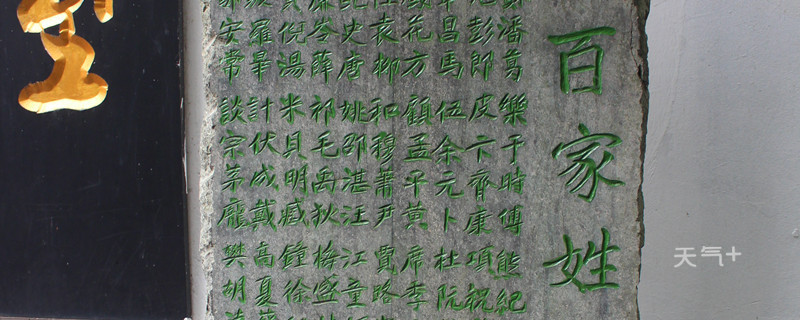 百家姓
潘葛樂于時傅熊紀
彭郎皮卞齊康項祝
昌馬伍余元卜杜阮
花方顧孟平黃席季
袁柳和穆蕭尹賈路
史唐姚邵湛汪江童
岑薛祁毛禹狄梅盛
倪湯米貝明臧鍾徐
羅畢計伏成戴高夏
安常談宋茅龐樊胡
天气+